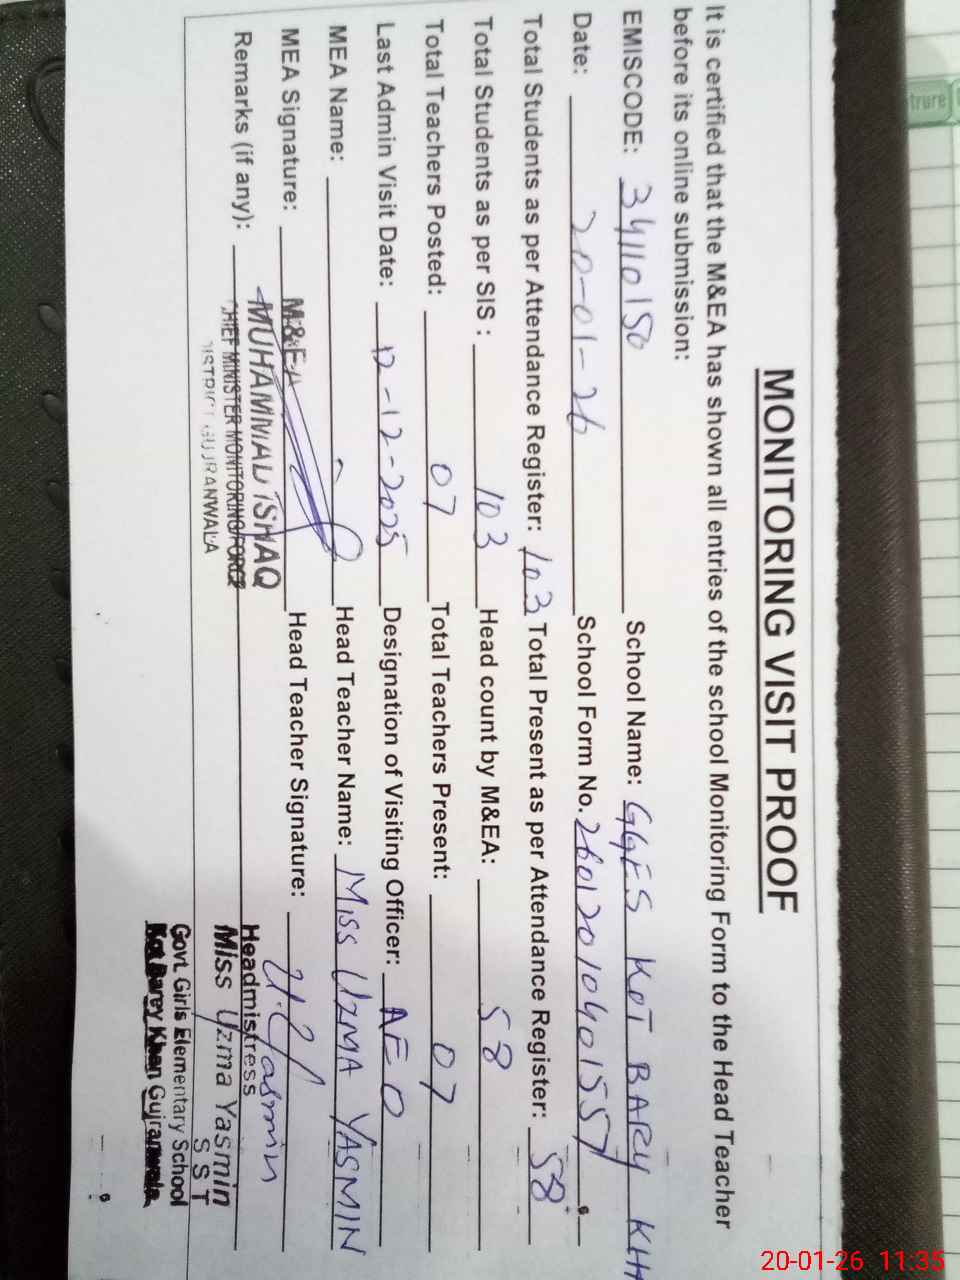 MONITORING VISIT PROOF
It is certified that the M&EA has shown all entries of the school Monitoring Form to the Head Teacher
before its online submission:
EMISCODE: 34110150 School Name: GGES KOT BAREY KH
Date: 20-01-26 School Form No. 26012010401557
Total Students as per Attendance Register: 103 Total Present as per Attendance Register: 58
Total Students as per SIS : 103 Head count by M&EA: 58
Total Teachers Posted: 07 Total Teachers Present: 07
Last Admin Visit Date: 12-12-2025 Designation of Visiting Officer: AEO
MEA Name: Head Teacher Name: MISS UZMA YASMIN
MEA Signature: Head Teacher Signature: U.Yasmin
Remarks (if any):
M&EA
MUHAMMAD ISHAQ
CHIEF MINISTER MONITORING FORCE
DISTRICT GUJRANWALA
Headmistress
Miss Uzma Yasmin
S S T
Govt. Girls Elementary School
Kot Barey Khan Gujranwala
20-01-26 11:35